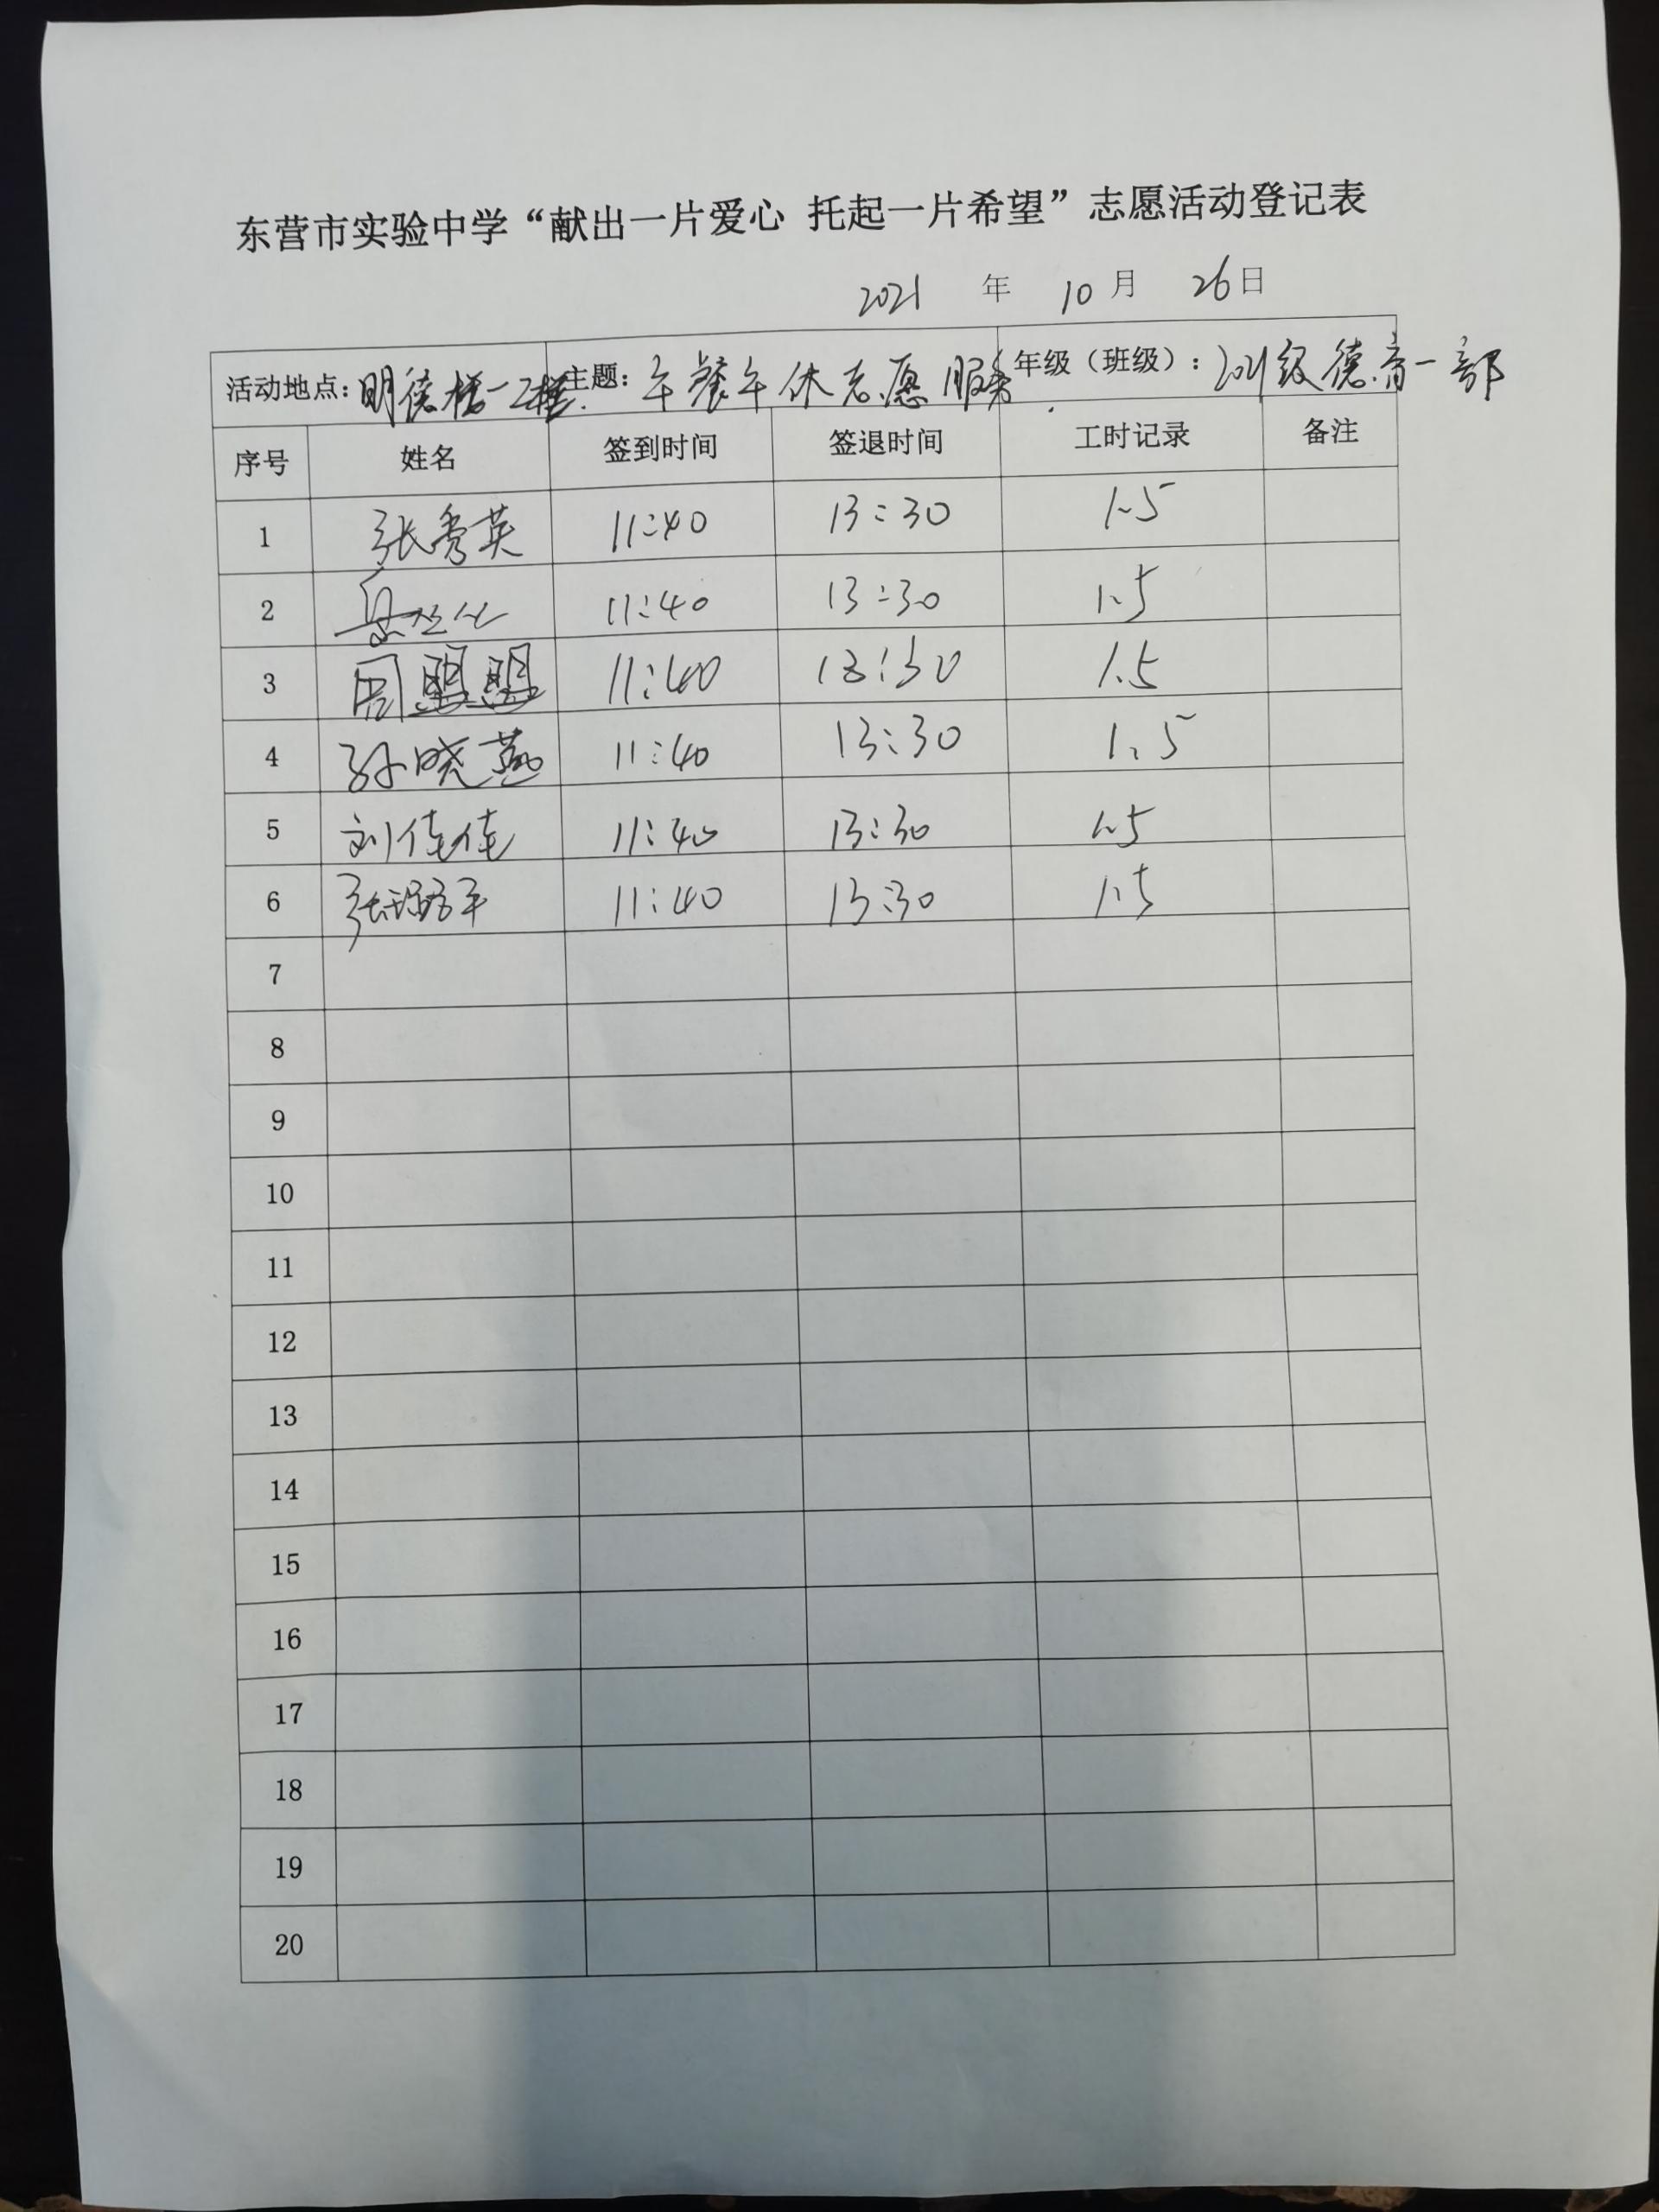 东营市实验中学“献出一片爱心 托起一片希望”志愿活动登记表
2021 年 10 月 26 日
活动地点：明德楼一二楼 主题：午餐午休志愿服务 年级（班级）：2021级德育一部
序号 姓名 签到时间 签退时间 工时记录 备注
1 张秀英 11:40 13:30 1.5
2 11:40 13:30 1.5
3 周盟盟 11:40 13:30 1.5
4 孙晓燕 11:40 13:30 1.5
5 刘佳佳 11:40 13:30 1.5
6 张 平 11:40 13:30 1.5
7
8
9
10
11
12
13
14
15
16
17
18
19
20